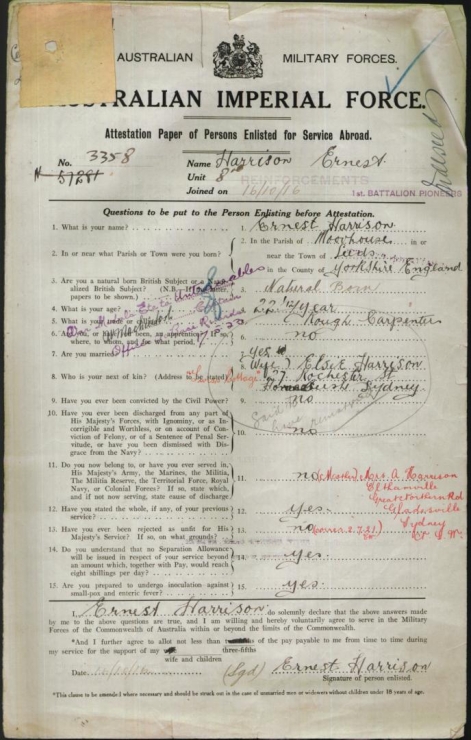 AUSTRALIAN MILITARY FORCES.
AUSTRALIAN IMPERIAL FORCE.
Attestation Paper of Persons Enlisted for Service Abroad.
No. 3358 Name Harrison Ernest
Unit 8th REINFORCEMENTS
1st. BATTALION PIONEERS
Joined on 16/10/16
Questions to be put to the Person Enlisting before Attestation.
1. What is your name? 1. Ernest Harrison
2. In or near what Parish or Town were you born? 2. In the Parish of Moorhouse in or
near the Town of Leeds
in the County of Yorkshire England
3. Are you a natural born British Subject or a
alized British Subject? (N.B.
papers to be shown.) 3. Natural Born
4. What is your age? 4. 22 year
5. What is your 5. Rough Carpenter
6. an apprentice? If so
where, to whom, and for what period, 6. no
7. Are you married? 7. yes
8. Who is your next of kin? (Address to be stated) 8. (Wife) Elsie Harrison
27 Rochester St
Homebush Sydney
9. Have you ever been convicted by the Civil Power? 9. no
10. Have you ever been discharged from any part of
His Majesty's Forces, with Ignominy, or as In-
corrigible and Worthless, or on account of Con-
viction of Felony, or of a Sentence of Penal Ser-
vitude, or have you been Dismissed with
Disgrace from the Navy? 10. no
11. Do you now belong to, or have you ever served in,
His Majesty's Army, the Marines, the Militia,
The Militia Reserve, the Territorial Force, Royal
Navy, or Colonial Forces? If so, state which,
and if not now serving, state cause of discharge 11. no
A Harrison
Great Northern Rd
Gladesville
Sydney
12. Have you stated the whole, if any, of your previous
service? 12. yes
13. Have you ever been rejected as unfit for His
Majesty's Service? If so, on what grounds? 13. no
14. Do you understand that no Separation Allowance
will be issued in respect of your service beyond
an amount which, together with Pay, would reach
eight shillings per day? 14. yes
15. Are you prepared to undergo inoculation against
small-pox and enteric fever? 15. yes
I, Ernest Harrison do solemnly declare that the above answers
made by me to the above questions are true, and I am willing and hereby voluntarily agree to serve in the Military
Forces of the Commonwealth of Australia within or beyond the limits of the Commonwealth.
*And I further agree to allot not less than of the pay payable to me from time to time
three-fifths
during my service for the support of my
wife and children
Date 16/10/16 (Sgd) Ernest Harrison
Signature of person enlisted.
*This clause to be amended where necessary and should be struck out in the case of unmarried men or widowers without children under 18 years of age.